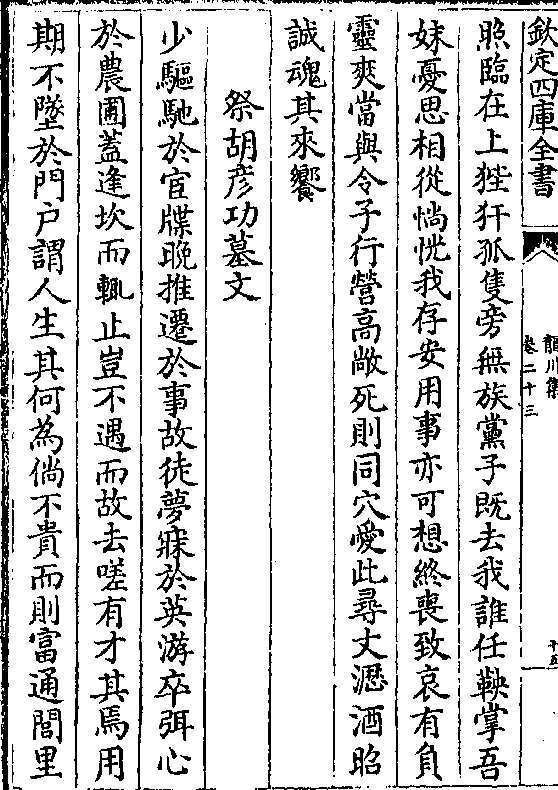 欽定四庫全書
龍川集
卷二十三
照臨在上狴犴孤隻旁無族黨子既去我誰任鞅掌吾
妹憂思相從惝恍我存安用事亦可想終喪致哀有負
靈爽當與令子行營高敞死則同穴愛此尋丈灑酒昭
誠魂其來饗
祭胡彦功墓文
少驅馳於宦牒晚推遷於事故徒夢寐於英游卒弭心
於農圃蓋逢坎而輒止豈不遇而故去嗟有才其焉用
期不墜於門户謂人生其何為倘不貴而則富通閭里